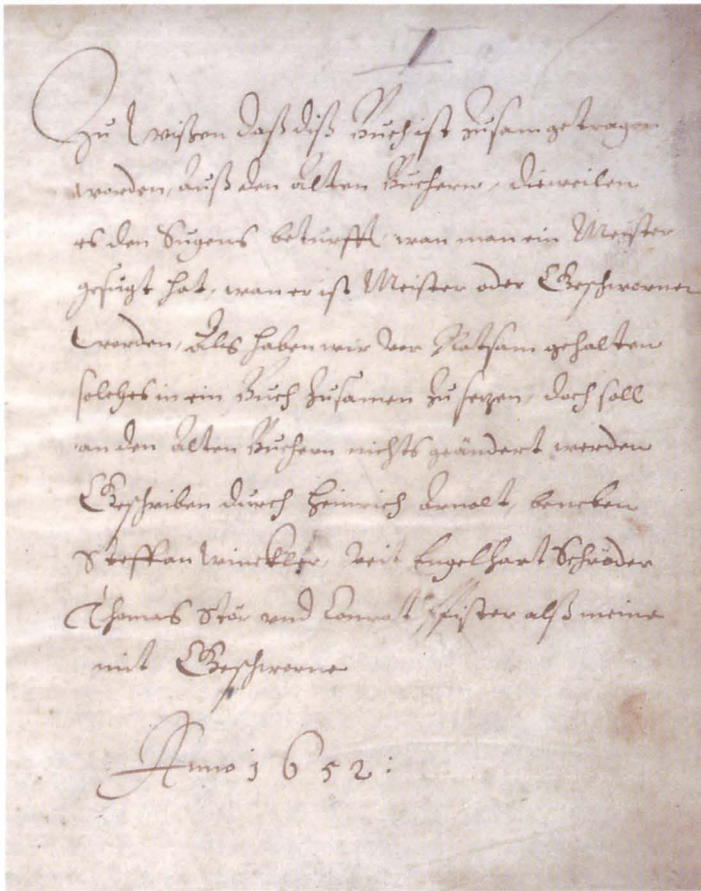 1
Zu wissen daß diß Buch ist zusam getragen
worden, auß den alten Büchern, dieweilen
es den Sugens beturfft, wan man ein Meister
gesugt hat, wan er ist Meister oder Geschworner
worden, Als haben wir vor Ratsam gehalten
solches in ein Buch zusamen zu sezen, doch soll
an den alten Büchern nichts geändert werden
Geschriben durch Heinrich Arnolt, beneben
Steffan Winckler, Veit Engelhart Schröder
Thomas Stör vnd Conrat Pfister alß meine
mit Geschworne
Anno 1652: